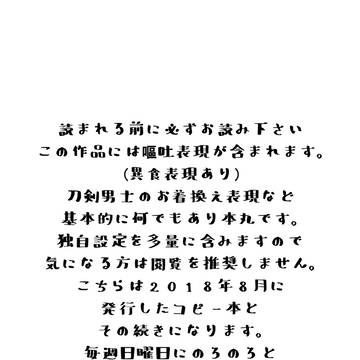 読まれる前に必ずお読み下さい
この作品には嘔吐表現が含まれます。
(異食表現あり)
刀剣男士のお着換え表現など
基本的に何でもあり本丸です。
独自設定を多量に含みますので
気になる方は閲覧を推奨しません。
こちらは2018年8月に
発行したコピー本と
その続きになります。
毎週日曜日にのろのろと